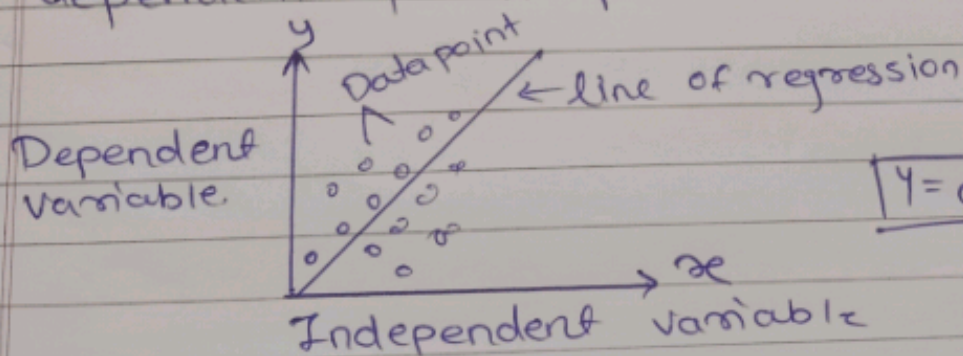 y
Data point
← line of regression
Dependent
variable.
Y=
x
Independent variable